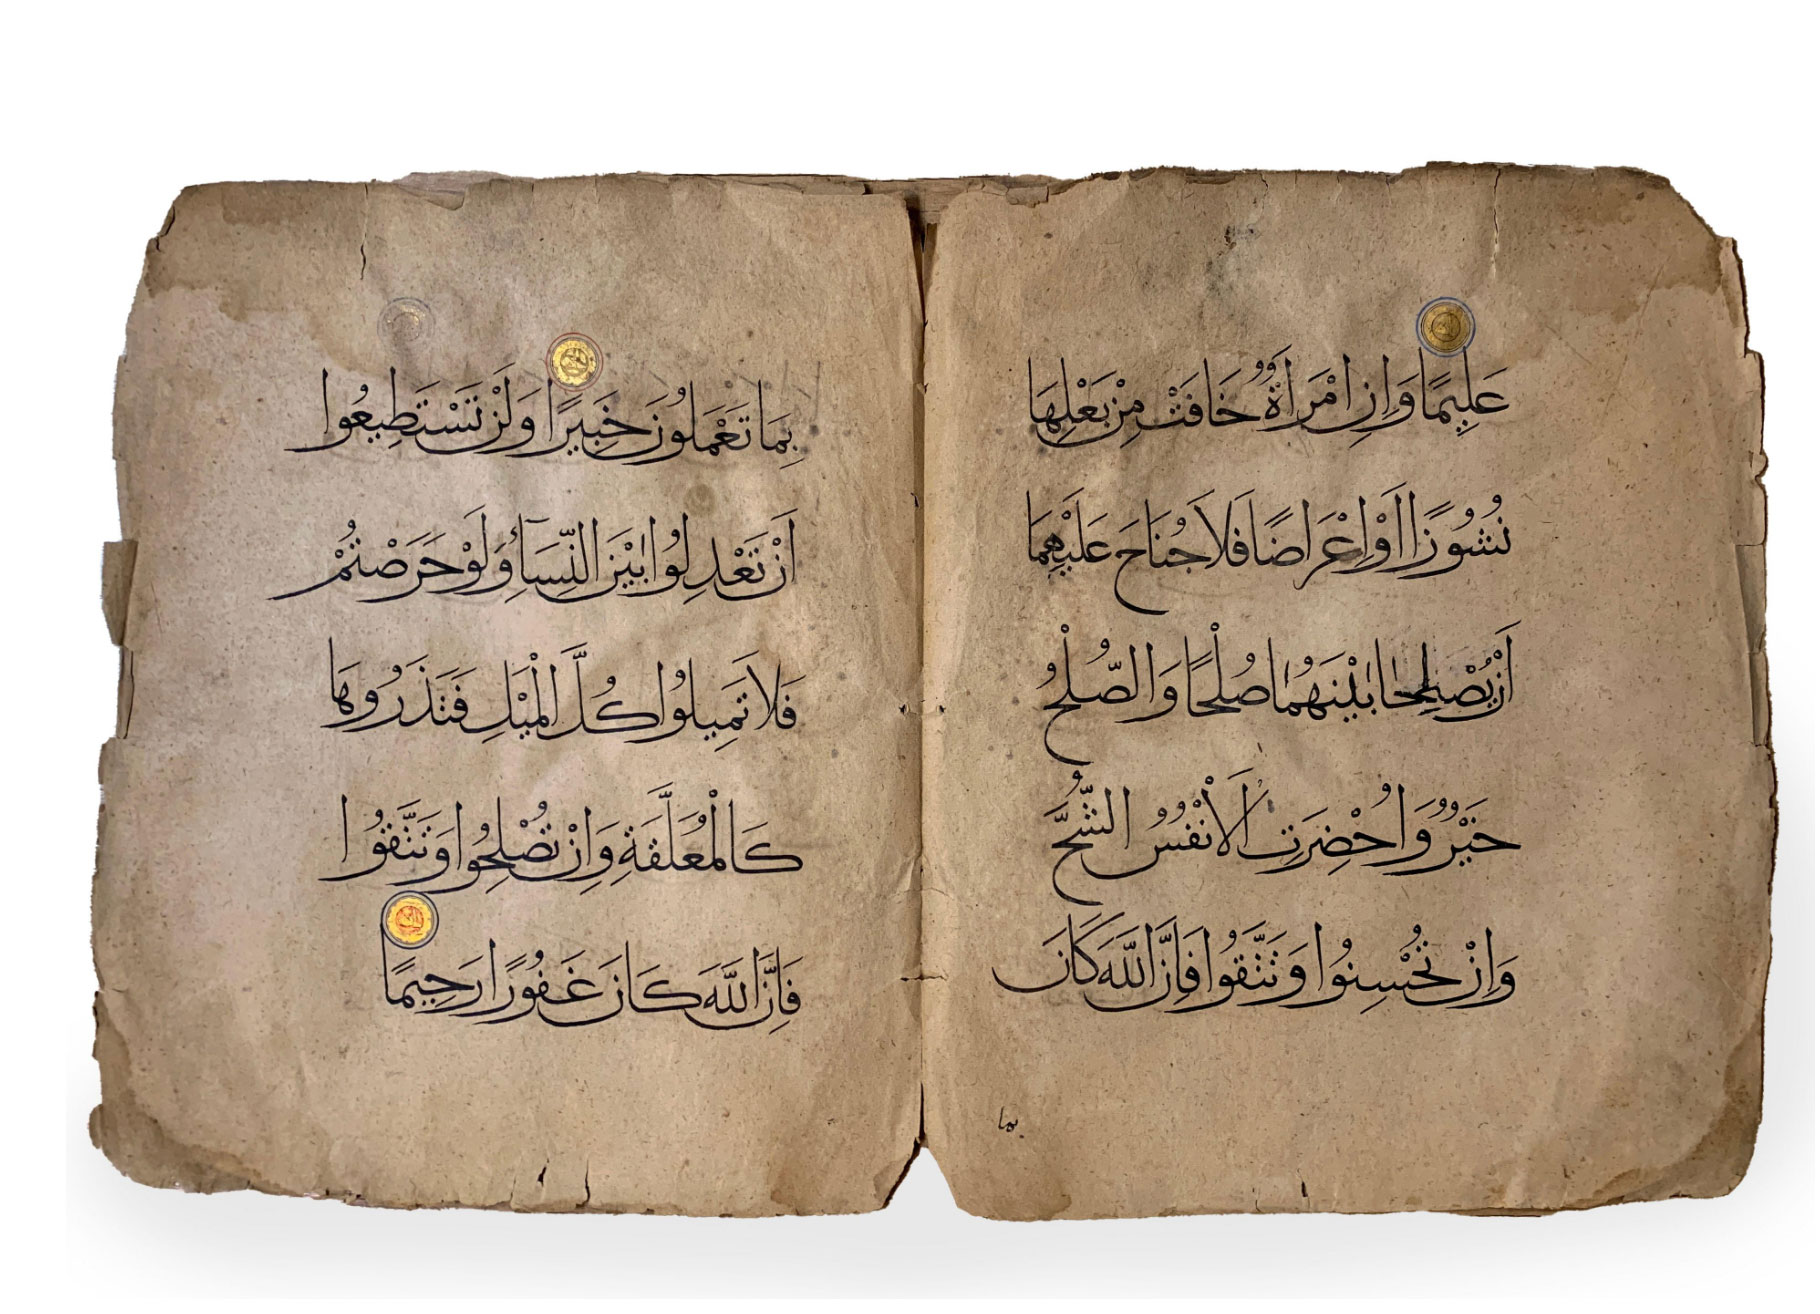 عَلِيمًا وَإِنِ امْرَأَةٌ خَافَتْ مِنْ بَعْلِهَا
نُشُوزًا أَوْ إِعْرَاضًا فَلَا جُنَاحَ عَلَيْهِمَا
أَنْ يُصْلِحَا بَيْنَهُمَا صُلْحًا وَالصُّلْحُ
خَيْرٌ وَأُحْضِرَتِ الْأَنْفُسُ الشُّحَّ
وَإِنْ تُحْسِنُوا وَتَتَّقُوا فَإِنَّ اللَّهَ كَانَ
بما
بِمَا تَعْمَلُونَ خَبِيرًا وَلَنْ تَسْتَطِيعُوا
أَنْ تَعْدِلُوا بَيْنَ النِّسَآءِ وَلَوْ حَرَصْتُمْ
فَلَا تَمِيلُوا كُلَّ الْمَيْلِ فَتَذَرُوهَا
كَالْمُعَلَّقَةِ وَإِنْ تُصْلِحُوا وَتَتَّقُوا
فَإِنَّ اللَّهَ كَانَ غَفُورًا رَحِيمًا